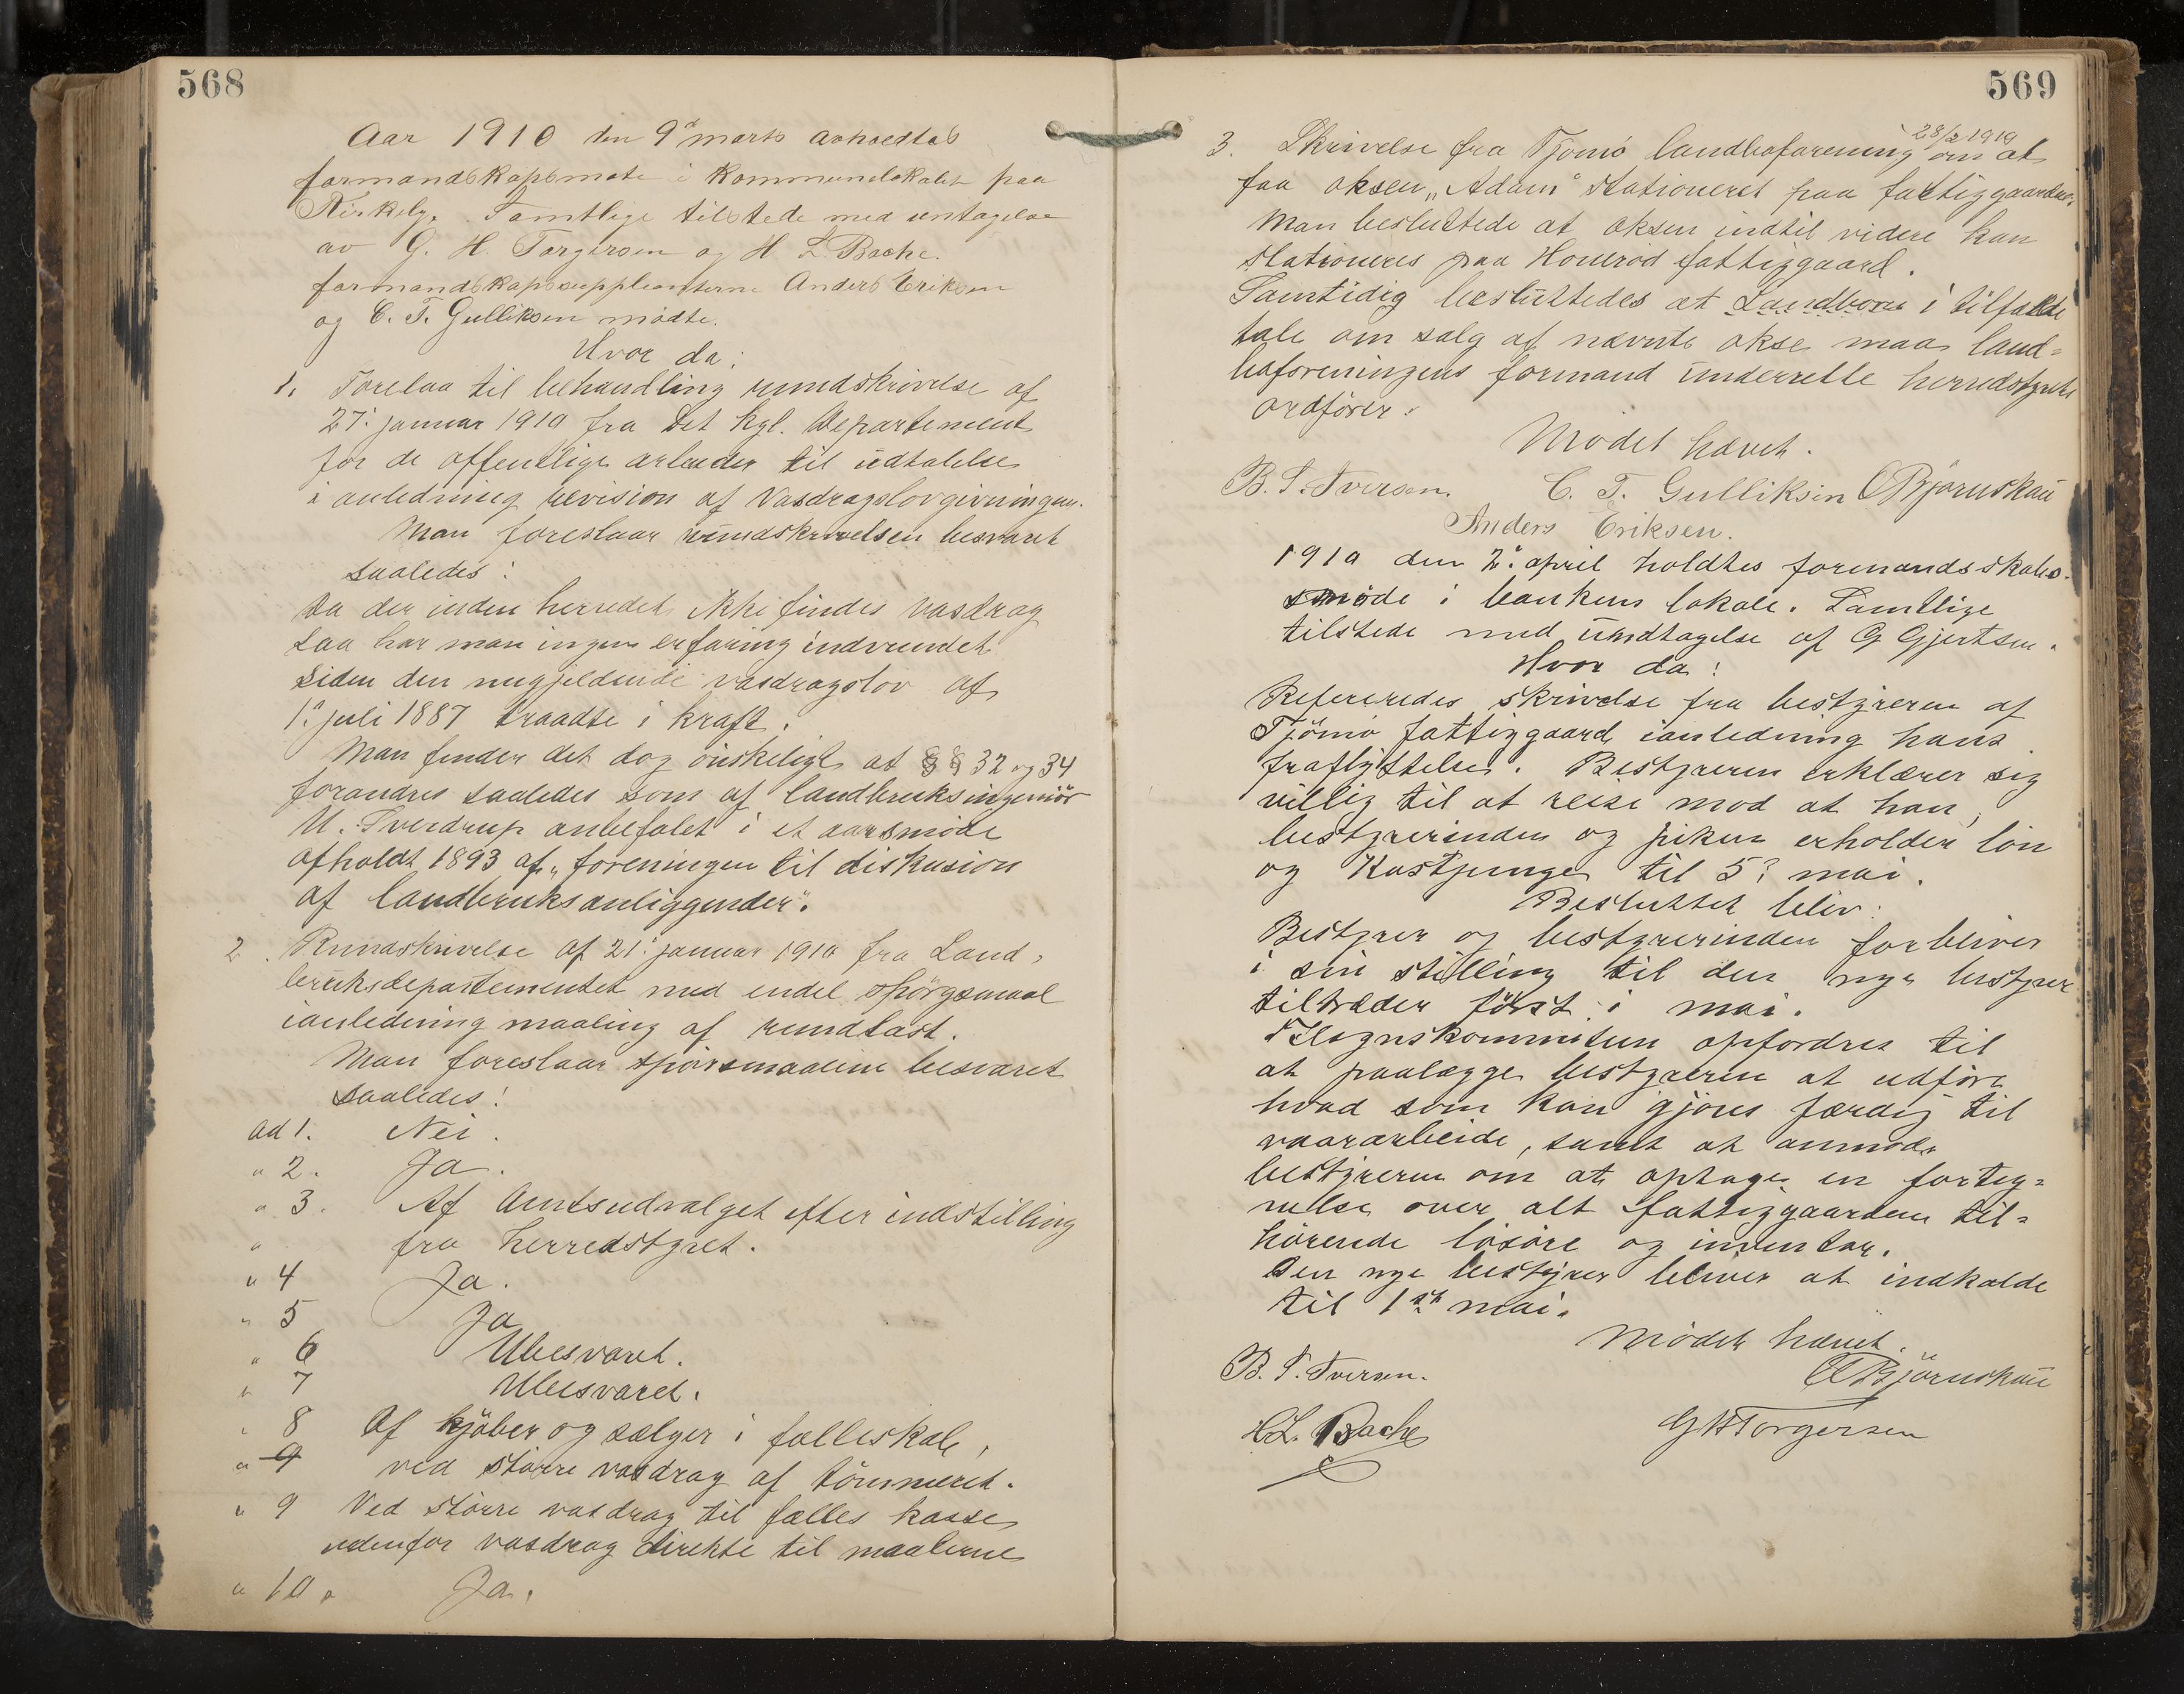 568
Aar 1910 den 9d marts avhoedtes
formandskapsmøte i Kommunelokalet paa
Kirkelg. Samtlige tilstede med untagelse
av G. H. Torgersen og H L Bache.
formandskapssuppleanterne Anders Eriksen
og C. T. Gulliksen mødte.
Hvor da:
1. Forelaa til behandling rundskrivelse af
27. januar 1910 fra Det kgl. Departement
for de offentlige arbeider til udtalelse
i anledning revision af Vasdragslovgivningen.
Man foreslaar rundskrivelsen besvaret
saaledes:
Da der inden herredet ikke findes vasdrag
saa har man ingen erfaring indvundet
siden den nugjeldende vasdragslov af
1. juli 1887 traadte i kraft.
Man finder det dog ønskeligt at §§ 32 og 34
forandres saaledes som af landbruksingeniør
U. Sverdrup anbefalet i et aarsmøde
afholdt 1893 af „foreningen til diskusion
af landbruksanliggender“.
2. Rundskrivelse af 21. januar 1910 fra Land-
bruksdepartementet med endel spörgsmaal
ianledning maaling af rundlast.
Man foreslaar spørsmaalene besvaret
saaledes:
ad 1. Nei.
" 2. Ja.
" 3. Af Amtsudvalget efter indstilling
" fra herredstyret.
" 4 Ja.
" 5 Ja
" 6 Ubesvaret.
" 7 Ubesvaret.
" 8 Af kjøber og sælger i fælleskab,
" 9 ved større vasdrag af tömmeret.
" 9 Ved større vasdrag til fælles kasse
udenfor vasdrag direkte til maalerne
" 10. Ja.
569
28/2 1910
3. Skrivelse fra Tjømø landboforening om at
faa oksen „Adam“ stationeret paa fattiggaarden.
Man besluttede at oksen indtil videre kan
stationeres paa Honerød fattiggaard.
Samtidig besluttedes at Landboen i tilfælde
tale om salg af nævnte okse maa land-
boforeningens formand underrette herredstyrets
ordfører.
Mødet hævet.
B. S. Iversen. C. T. Gulliksen O Bjørnskau
Anders Eriksen.
1910 den 2. april holdtes formandsskabs-
møde i bankens lokale. Samtlige
tilstede med undtagelse af G Gjertsen.
Hvor da:
Refereredes skrivelse fra bestyreren af
Tjømø fattiggaard ianledning hans
fraflyttelse. Bestyreren erklærer sig
villig til at reise mod at han,
bestyrerinden og piken erholder løn
og Kostpenge til 5. mai.
Besluttet blev:
Bestyrer og bestyrerinden forbliver
i sin stilling til den nye bestyrer
tiltræder først i mai.
Tilsynskommiteen opfordres til
at paalægge bestyreren at udføre
hvad som kan gjøres færdig til
vaararbeide, samt at anmode
bestyreren om at optage en forteg-
nelse over alt fattiggaarden til-
hørende løsøre og inventar.
Den nye bestyrer bliver at indkalde
til 1st mai.
Mødet hævet.
B. S. Iversen. O Bjørnskau
H L. Bache G H Torgersen